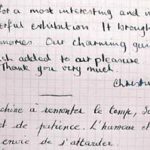 for a most interesting and
exhibition It brough
Our charming gui
added to our pleasure
Thank you very much
Christi
à remonter le temps,
de patience. L'humeur e
envie de s'attarder.